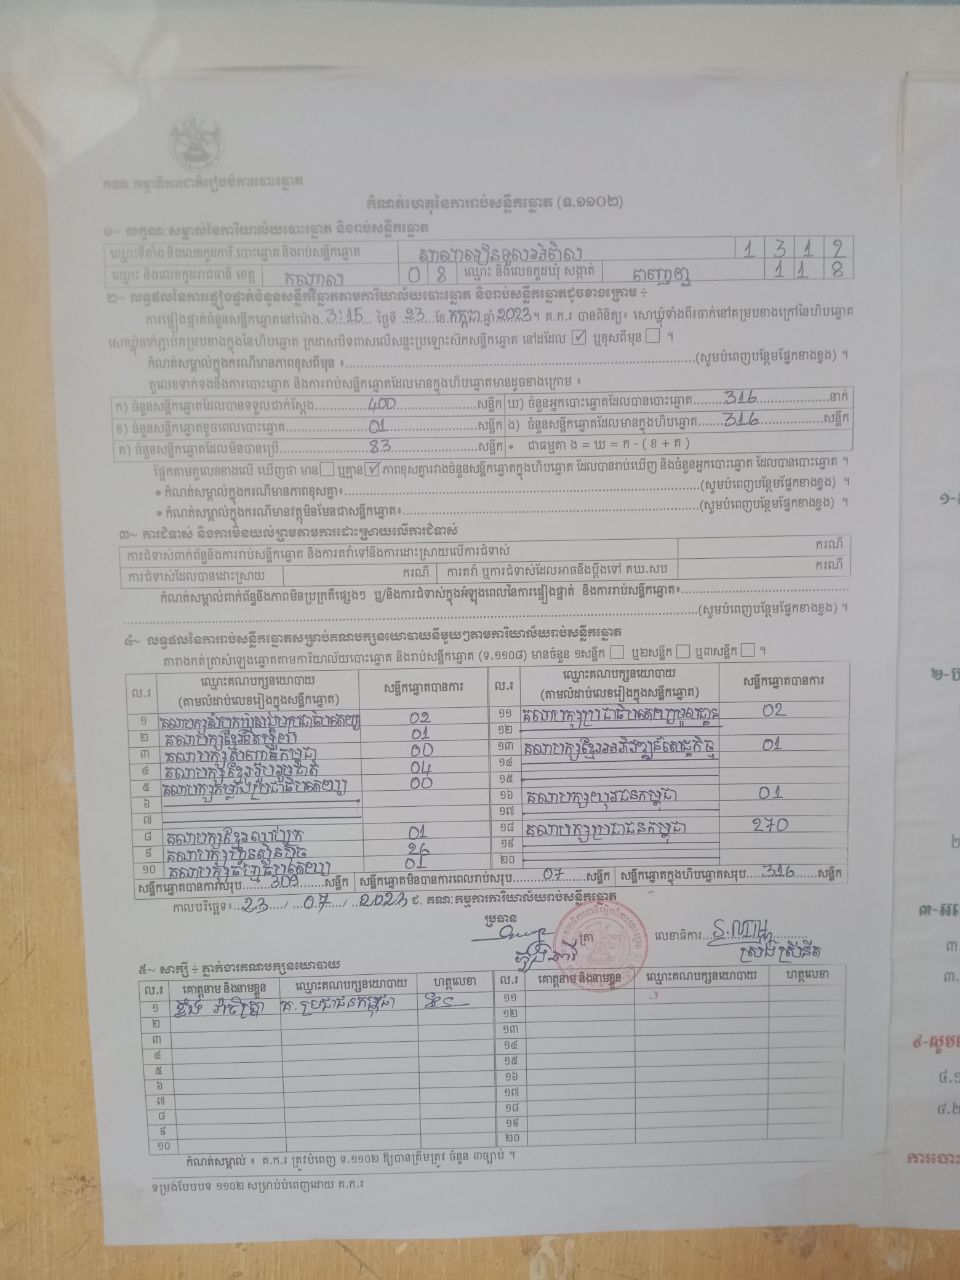 គណៈកម្មាធិការជាតិរៀបចំការបោះឆ្នោត
កំណត់ហេតុនៃការរាប់សន្លឹកឆ្នោត (ទ.១១០២)
១~ លក្ខណៈសម្គាល់នៃការិយាល័យបោះឆ្នោត និងរាប់សន្លឹកឆ្នោត
ឈ្មោះទីតាំង និងលេខកូដការិ.បោះឆ្នោត និងរាប់សន្លឹកឆ្នោត 1 3 1 2
ឈ្មោះ និងលេខកូដរាជធានី ខេត្ត កណ្តាល 0 8 ឈ្មោះ និងលេខកូដឃុំ សង្កាត់ 1 1 8
២~ លទ្ធផលនៃការផ្ទៀងផ្ទាត់ចំនួនសន្លឹកឆ្នោតតាមការិយាល័យបោះឆ្នោត និងរាប់សន្លឹកឆ្នោតដូចខាងក្រោម ÷
ការផ្ទៀងផ្ទាត់ចំនួនសន្លឹកឆ្នោតនៅម៉ោង 3:15 ថ្ងៃទី 23 ខែ កក្កដា ឆ្នាំ 2023។ គ.ក.រ បានពិនិត្យ៖ សោឃ្លុំទាំងពីរចាក់នៅគម្របខាងក្រៅនៃហិបឆ្នោត
សោឃ្លុំចាក់ភ្ជាប់គម្របខាងក្នុងនៃហិបឆ្នោត ក្រដាសបិទពាសលើសន្ទះប្រឡោះស៊កសន្លឹកឆ្នោត នៅដដែល ☑ ឬខុសពីមុន ☐ ។
កំណត់សម្គាល់ក្នុងករណីមានភាពខុសពីមុន ៖ (សូមបំពេញបន្ថែមផ្នែកខាងខ្នង) ។
តួលេខទាក់ទងនឹងការបោះឆ្នោត និងការរាប់សន្លឹកឆ្នោតដែលមានក្នុងហិបឆ្នោតមានដូចខាងក្រោម ៖
ក) ចំនួនសន្លឹកឆ្នោតដែលបានទទួលជាក់ស្តែង 400 សន្លឹក ឃ) ចំនួនអ្នកបោះឆ្នោតដែលបានបោះឆ្នោត 316 នាក់
ខ) ចំនួនសន្លឹកឆ្នោតខូចពេលបោះឆ្នោត 01 សន្លឹក ង) ចំនួនសន្លឹកឆ្នោតដែលមានក្នុងហិបឆ្នោត 316 សន្លឹក
គ) ចំនួនសន្លឹកឆ្នោតដែលមិនបានប្រើ 83 សន្លឹក • ជាធម្មតា ង = ឃ = ក - ( ខ + គ )
ផ្អែកតាមតួលេខខាងលើ ឃើញថា មាន ☐ ឬគ្មាន ☑ ភាពខុសគ្នារវាងចំនួនសន្លឹកឆ្នោតក្នុងហិបឆ្នោត ដែលបានរាប់ឃើញ និងចំនួនអ្នកបោះឆ្នោត ដែលបានបោះឆ្នោត ។
• កំណត់សម្គាល់ក្នុងករណីមានភាពខុសគ្នា៖ (សូមបំពេញបន្ថែមផ្នែកខាងខ្នង) ។
• កំណត់សម្គាល់ក្នុងករណីមានវត្ថុមិនមែនជាសន្លឹកឆ្នោត៖ (សូមបំពេញបន្ថែមផ្នែកខាងខ្នង) ។
៣~ ការជំទាស់ និងការមិនយល់ព្រមតាមការដោះស្រាយលើការជំទាស់
ការជំទាស់ពាក់ព័ន្ធនឹងការរាប់សន្លឹកឆ្នោត និងការតវ៉ាទៅនឹងការដោះស្រាយលើការជំទាស់ ករណី
ការជំទាស់ដែលបានដោះស្រាយ ករណី ការតវ៉ា ឬការជំទាស់ដែលអាចនឹងប្តឹងទៅ គឃ.សប ករណី
កំណត់សម្គាល់ពាក់ព័ន្ធនឹងភាពមិនប្រក្រតីផ្សេងៗ ឬ/និងការជំទាស់ក្នុងអំឡុងពេលនៃការផ្ទៀងផ្ទាត់ និងការរាប់សន្លឹកឆ្នោត៖
(សូមបំពេញបន្ថែមផ្នែកខាងខ្នង) ។
៤~ លទ្ធផលនៃការរាប់សន្លឹកឆ្នោតសម្រាប់គណបក្សនយោបាយនីមួយៗតាមការិយាល័យរាប់សន្លឹកឆ្នោត
តារាងកត់ត្រាសំឡេងឆ្នោតតាមការិយាល័យបោះឆ្នោត និងរាប់សន្លឹកឆ្នោត (ទ.១១០៨) មានចំនួន ១សន្លឹក ☐ ឬ២សន្លឹក ☐ ឬ៣សន្លឹក ☐ ។
ល.រ ឈ្មោះគណបក្សនយោបាយ (តាមលំដាប់លេខរៀងក្នុងសន្លឹកឆ្នោត) សន្លឹកឆ្នោតបានការ ល.រ ឈ្មោះគណបក្សនយោបាយ (តាមលំដាប់លេខរៀងក្នុងសន្លឹកឆ្នោត) សន្លឹកឆ្នោតបានការ
១ 02 ១១ គណបក្សប្រជាធិបតេយ្យមូលដ្ឋាន 02
២ 01 ១២
៣ 00 ១៣ គណបក្សខ្មែរអភិវឌ្ឍន៍សេដ្ឋកិច្ច 01
៤ គណបក្សខ្មែររួបរួមជាតិ 04 ១៤
៥ គណបក្សកម្លាំងប្រជាធិបតេយ្យ 00 ១៥
៦ ១៦ គណបក្សយុវជនកម្ពុជា 01
៧ ១៧
៨ គណបក្សខ្មែរឈប់ក្រ 01 ១៨ គណបក្សប្រជាជនកម្ពុជា 270
៩ គណបក្សហ៊្វុនស៊ិនប៉ិច 26 ១៩
១០ គណបក្សធម្មាធិបតេយ្យ 01 ២០
សន្លឹកឆ្នោតបានការសរុប 309 សន្លឹក សន្លឹកឆ្នោតមិនបានការពេលរាប់សរុប 07 សន្លឹក សន្លឹកឆ្នោតក្នុងហិបឆ្នោតសរុប 316 សន្លឹក
កាលបរិច្ឆេទ៖ 23 / 07 / 2023 ជ. គណៈកម្មការការិយាល័យរាប់សន្លឹកឆ្នោត
ប្រធាន
ត្រា លេខាធិការ
៥~ សាក្សី ÷ ភ្នាក់ងារគណបក្សនយោបាយ
ល.រ គោត្តនាម និងនាមខ្លួន ឈ្មោះគណបក្សនយោបាយ ហត្ថលេខា ល.រ គោត្តនាម និងនាមខ្លួន ឈ្មោះគណបក្សនយោបាយ ហត្ថលេខា
១ គ. ប្រជាជនកម្ពុជា ១១
២ ១២
៣ ១៣
៤ ១៤
៥ ១៥
៦ ១៦
៧ ១៧
៨ ១៨
៩ ១៩
១០ ២០
កំណត់សម្គាល់ ៖ គ.ក.រ ត្រូវបំពេញ ទ.១១០២ ឱ្យបានត្រឹមត្រូវ ចំនួន ៣ច្បាប់ ។
ទម្រង់បែបបទ ១១០២ សម្រាប់បំពេញដោយ គ.ក.រ